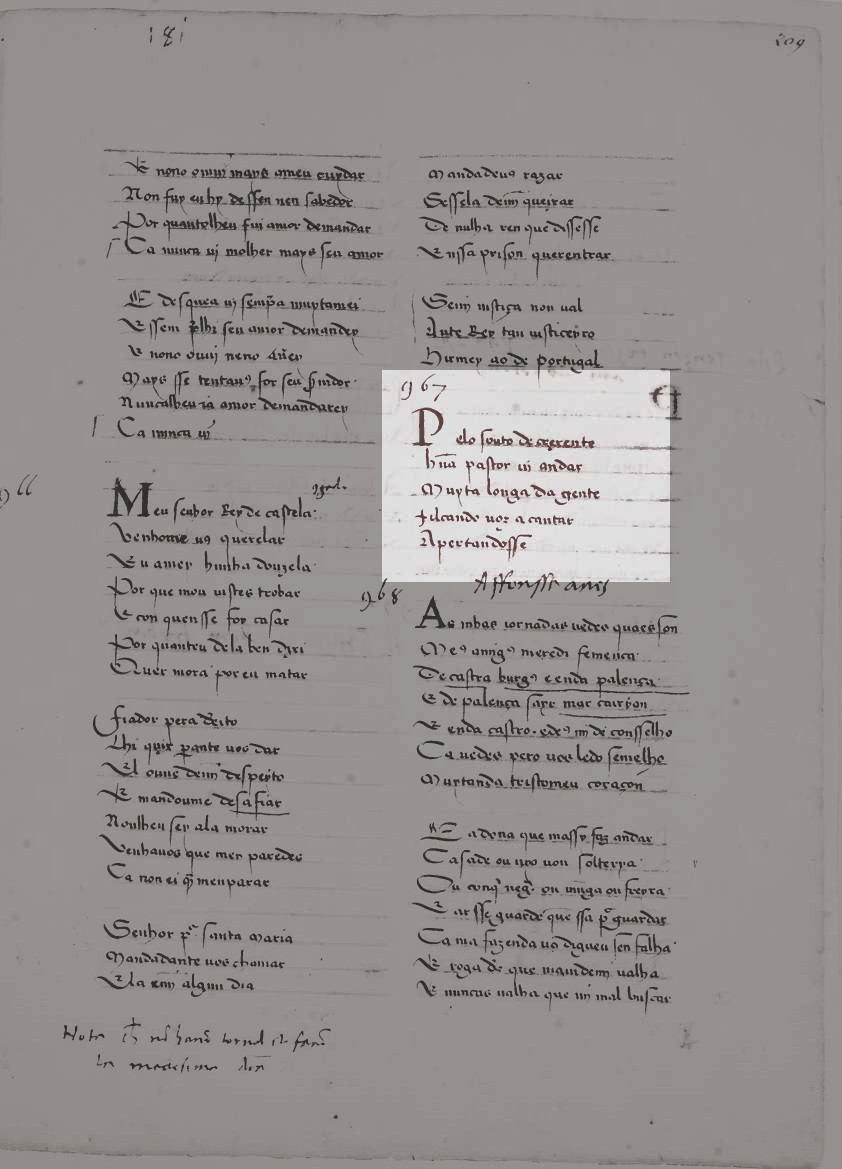 181
209
E nono ouuj mays ameu cuydar
Non fuy eu hy dessen nen sabedor
Por quantolheu fui amor demandar
Ca nunca uj molher mays seu amor
E desquea uj
E ssem seu amor demandey
E nono ouuj neno
Mays sse for seu
Nuncalheu ia amor demandarey
Ca nunca uj
Meu senhor Rey de castela
Venhome uos querelar
Eu amey hunha donzela
Por que mou uistes trobar
E con quensse foy casar
Por quanteu dela ben dixi
Quer mora por en matar
Fiador pera dereito
Lhi quix perante uos dar
El ouue demi despeyto
E mandoume desafiar
Noulheu sey ala morar
Venhauos que mem paredes
Ca non ei quem menparar
Senhor por santa Maria
Mandadante uos chamar
Ela em algun dia
Mandadeus razar
Sessela demi queixar
De nulha ren que dissesse
En ssa prison querentrar
Semj iustiça non ual
Ante Rey tan iusticeyro
Hirmey ao de portugal
967
Pelo souto de crexente
hũa pastor ui andar
Muyta longada gente
Alçando uoz a cantar
Apertandosse
968
As mhas iornadas uedes quaes son
Meus amigos meredi femença
De castra burgos e enda palença
E de palença sayr mac carryon
E enda castro. e deus mi de consselho
Ca uedes pero uos ledo semelho
Muytanda tristomeu coraçon
E a dona que massy faz andar
Casade ou uyo uou solteyra
Ou ou mõnga ou freyra
E ar sse guarde que ssa por guardar
Ca ma fazenda uos digueu sen falha
E roga deus que maiudem ualha
E nuncas ualha que mi mal buscar